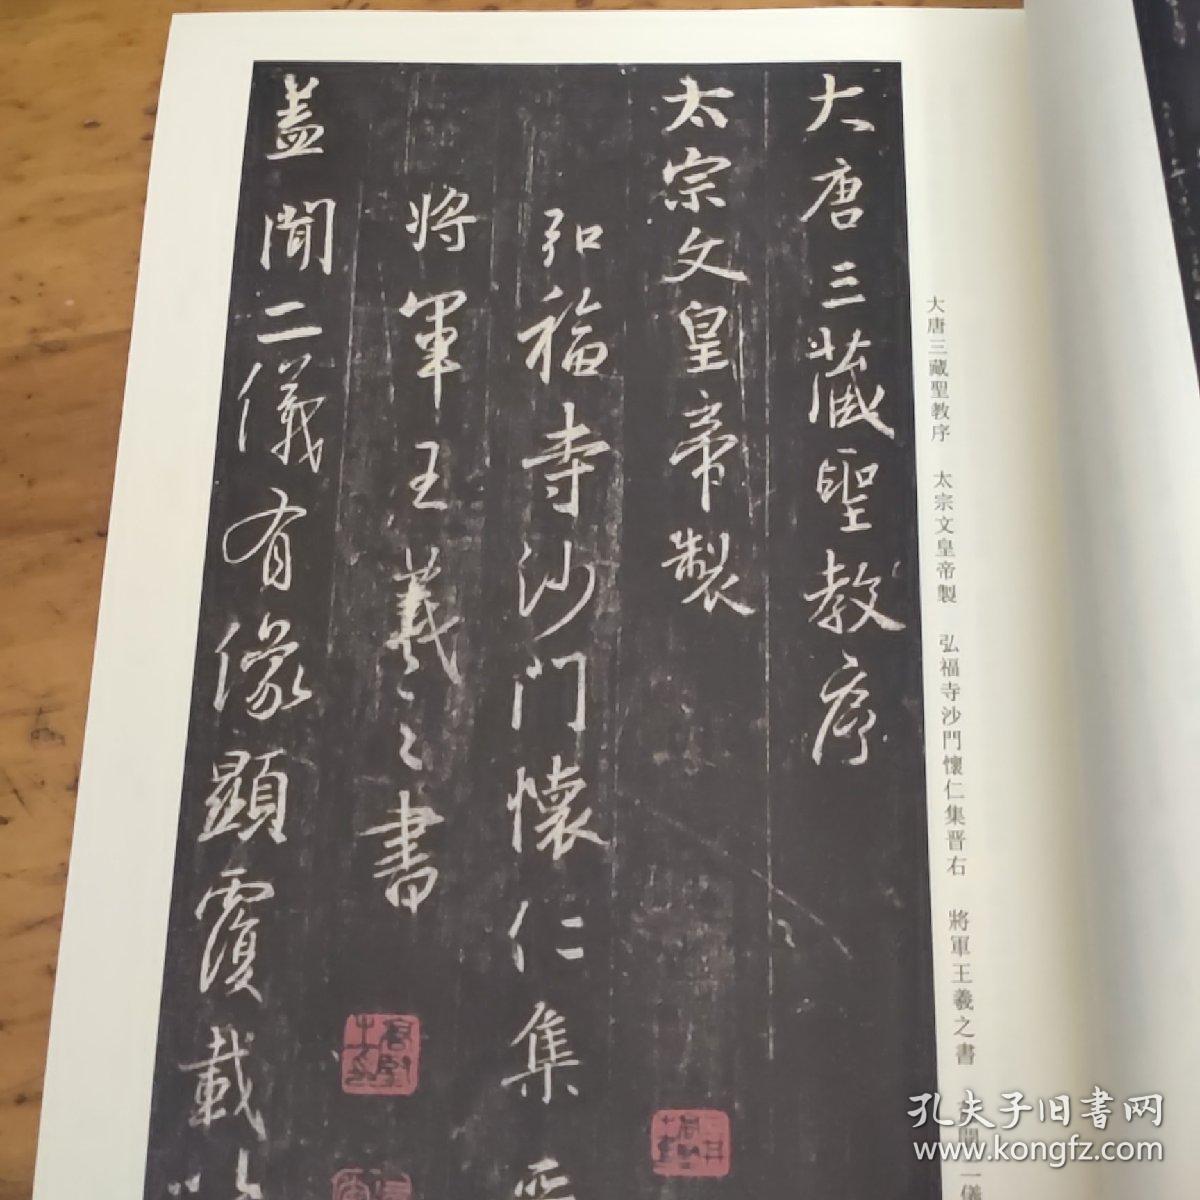 大唐三藏聖教序
太宗文皇帝製
弘福寺沙門懷仁集晋
將軍王羲之書
蓋聞二儀有像顯覆載以
大唐三藏聖教序 太宗文皇帝製 弘福寺沙門懷仁集晋右 將軍王羲之書 蓋聞二儀
孔夫子旧书网
www.kongfz.com